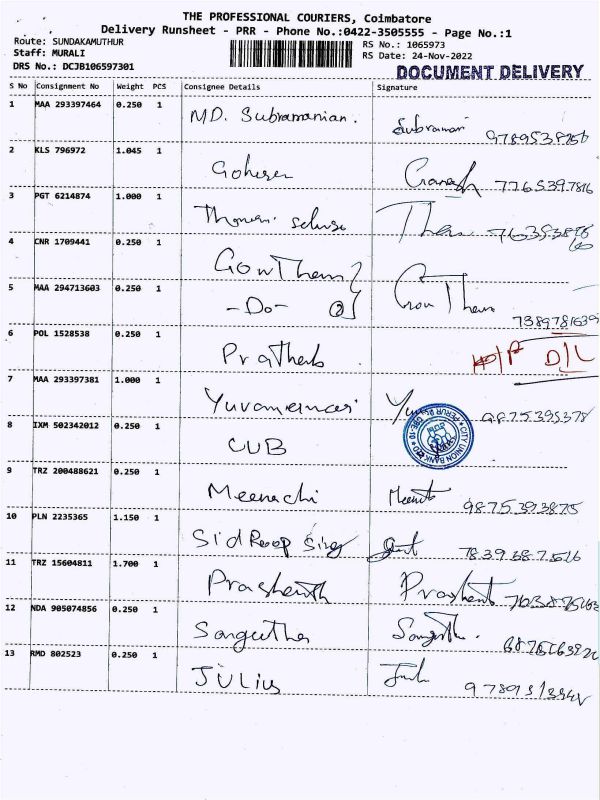 THE PROFESSIONAL COURIERS, Coimbatore
Delivery Runsheet - PRR - Phone No.:0422-3505555 - Page No.:1
Route: SUNDAKAMUTHUR
Staff: MURALI
DRS No.: DCJB106597301
RS No.: 1065973
RS Date: 24-Nov-2022
DOCUMENT DELIVERY
S No Consignment No Weight PCS Consignee Details Signature
1 MAA 293397464 0.250 1 MD. Subramanian.
2 KLS 796972 1.045 1 7765397816
3 PGT 6214874 1.000 1
4 CNR 1709441 0.250 1 GowTham
5 MAA 294713603 0.250 1 -Do- Gow Tham 7389781639
6 POL 1528538 0.250 1 D/L
7 MAA 293397381 1.000 1 9875395378
8 IXM 502342012 0.250 1 CUB CITY UNION BANK
9 TRZ 200488621 0.250 1 Meenachi 9875393875
10 PLN 2235365 1.150 1 Sid Roop Sing
11 TRZ 15604811 1.700 1 Prashanth Prashant
12 NDA 905074856 0.250 1 Sangeetha
13 RMD 802523 0.250 1 JULius